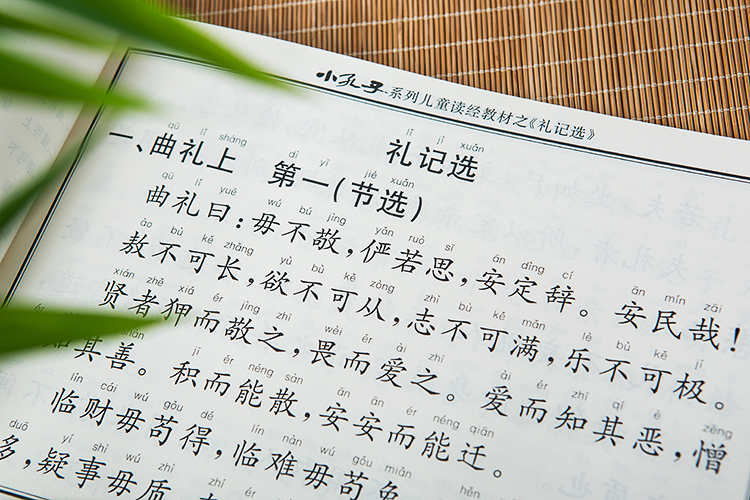 小孔子系列儿童读经教材之《礼记选》
lǐ jì xuǎn
礼记选
qū lǐ shàng dì yī jié xuǎn
一、曲礼上 第一(节选)
qū lǐ yuē wú bú jìng yǎn ruò sī ān dìng cí ān mín zāi
曲礼曰：毋不敬，俨若思，安定辞。安民哉！
ào bù kě zhǎng yù bù kě zòng zhì bù kě mǎn lè bù kě jí
敖不可长，欲不可从，志不可满，乐不可极。
xián zhě xiá ér jìng zhī wèi ér ài zhī ài ér zhī qí è zēng
贤者狎而敬之，畏而爱之。爱而知其恶，憎
jī ér néng sàn ān ān ér néng qiān
其善。积而能散，安安而能迁。
lín cái wú gǒu dé lín nàn wú gǒu miǎn
临财毋苟得，临难毋苟免
duō yí shì wú zhì
多，疑事毋质